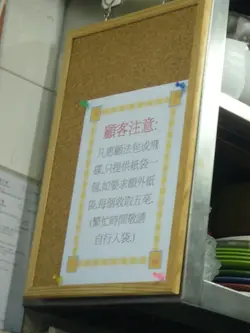 顧客注意:
凡惠顧法包或飛
碟,只提供紙袋一
個,如要求額外紙
袋,每個收散五毫.
(繁忙時間敬請
自行入袋.)